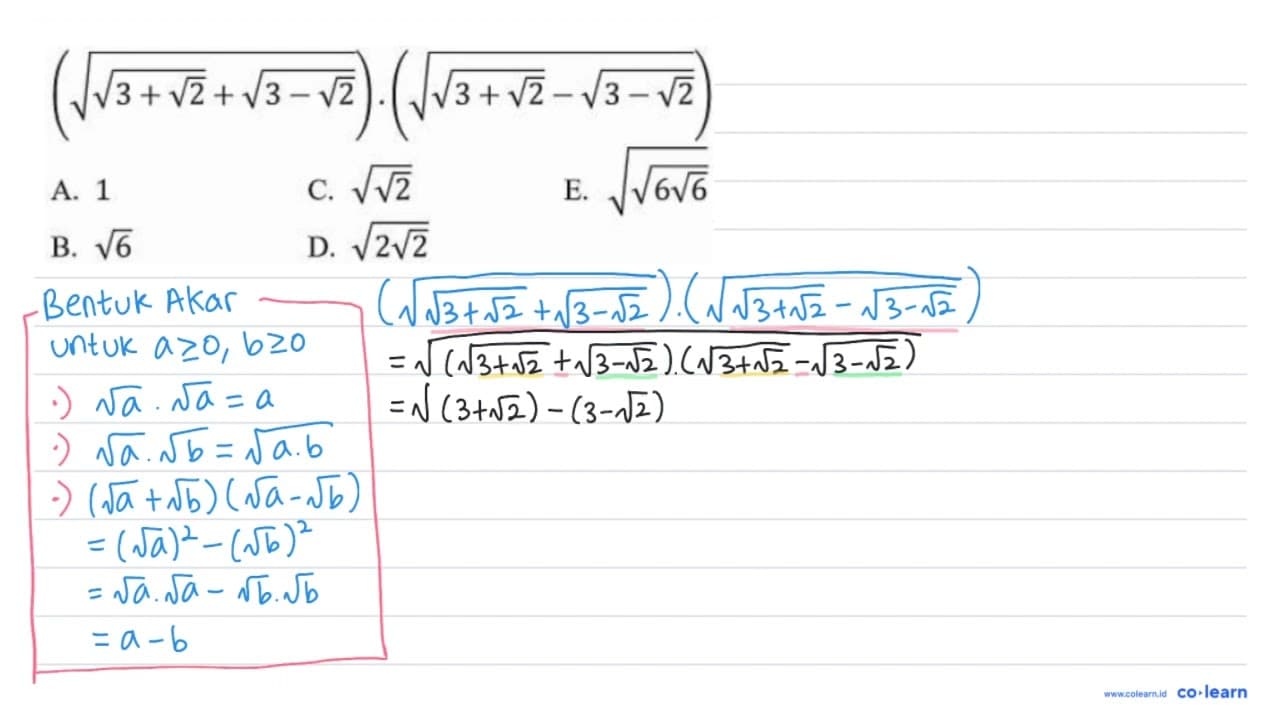 (√(√(3 + √2) + √(3 − √2))) . (√(√(3 + √2) − √(3 − √2)))
A. 1 C. √√2 E. √√(6√6)
B. √6 D. √(2√2)
Bentuk Akar
untuk a ≥ 0, b ≥ 0
·) √a . √a = a
·) √a . √b = √(a.b)
·) (√a + √b) (√a - √b)
= (√a)² - (√b)²
= √a . √a - √b . √b
= a - b
(√(√(3+√2) + √(3-√2))) . (√(√(3+√2) - √(3-√2)))
= √((√(3+√2) + √(3-√2)) . (√(3+√2) - √(3-√2)))
= √ (3+√2) - (3-√2)
www.colearn.id co·learn